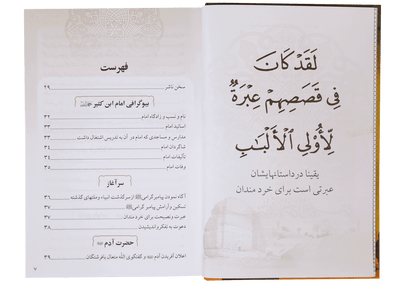 لَقَدْ كَانَ
فِي قَصَصِهِمْ عِبْرَةٌ
لِّأُولِي الْأَلْبَابِ
یقینا در داستانهایشان
عبرتی است برای خرد مندان
فهرست
سخن ناشر ۲۹
بیوگرافی امام ابن کثیر
نام و نسب و زادگاه امام ۳۲
اساتید امام ۳۳
مدارس و مساجدی که امام در آن به تدریس اشتغال داشت ۳۳
شاگردان امام ۳۴
تألیفات امام ۳۴
وفات امام ۳۵
سرآغاز
آگاه نمودن پیامبر گرامی ﷺ از سرگذشت انبیاء و ملتهای گذشته ۳۶
تسکین و آرامش پیامبر گرامی ﷺ ۳۷
عبرت و نصیحت برای خردمندان ۳۷
دعوت به تفکر و اندیشیدن ۳۸
حضرت آدم
اعلان آفریدن آدم و گفتگوی الله متعال با فرشتگان ۳۹
۷